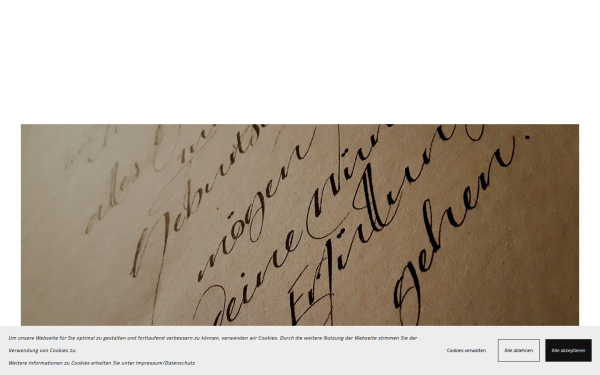 alles
Geburts
mögen
deine Wün
Erfüllung
gehen.
Um unsere Webseite für Sie optimal zu gestalten und fortlaufend verbessern zu können, verwenden wir Cookies. Durch die weitere Nutzung der Webseite stimmen Sie der
Verwendung von Cookies zu.
Weitere Informationen zu Cookies erhalten Sie unter Impressum/Datenschutz
Cookies verwalten
Alle ablehnen
Alle akzeptieren